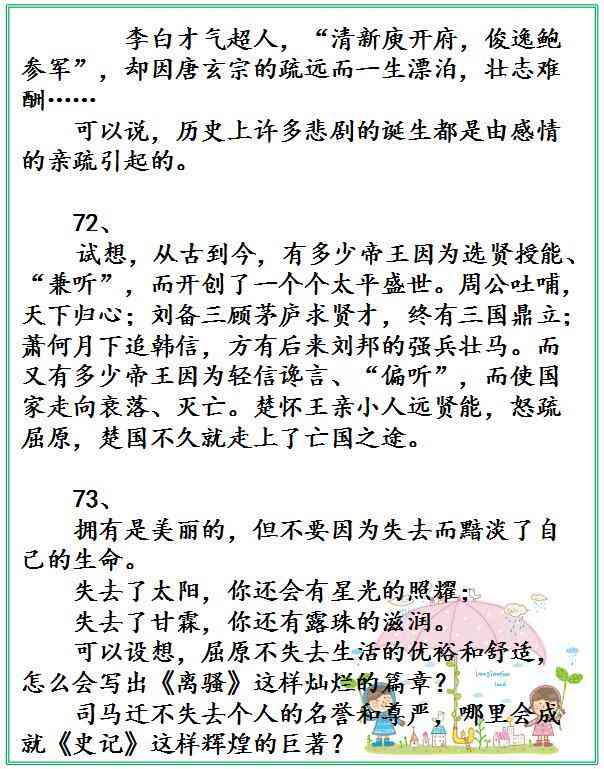 李白才气超人，“清新庾开府，俊逸鲍
参军”，却因唐玄宗的疏远而一生漂泊，壮志难
酬……
可以说，历史上许多悲剧的诞生都是由感情
的亲疏引起的。
72、
试想，从古到今，有多少帝王因为选贤授能、
“兼听”，而开创了一个个太平盛世。周公吐哺，
天下归心；刘备三顾茅庐求贤才，终有三国鼎立；
萧何月下追韩信，方有后来刘邦的强兵壮马。而
又有多少帝王因为轻信谗言、“偏听”，而使国
家走向衰落、灭亡。楚怀王亲小人远贤能，怒疏
屈原，楚国不久就走上了亡国之途。
73、
拥有是美丽的，但不要因为失去而黯淡了自
己的生命。
失去了太阳，你还会有星光的照耀；
失去了甘霖，你还有露珠的滋润。
可以设想，屈原不失去生活的优裕和舒适，
怎么会写出《离骚》这样灿烂的篇章？
司马迁不失去个人的名誉和尊严，哪里会成
就《史记》这样辉煌的巨著？
Imagination
land